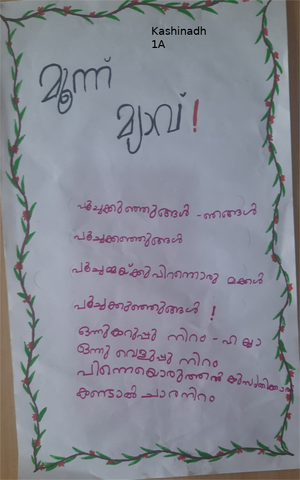 Kashinadh
1A
മൂന്ന്
മ്യാവ് !
പൂച്ചക്കുഞ്ഞുങ്ങൾ - ഞങ്ങൾ
പൂച്ചക്കുഞ്ഞുങ്ങൾ
പൂച്ചമ്മയ്ക്കു പിറന്നൊരു മക്കൾ
പൂച്ചക്കുഞ്ഞുങ്ങൾ !
ഒന്നു കറുപ്പു നിറം -
ഒന്നു വെളുപ്പു നിറം
പിന്നെയൊരുത്തൻ
കണ്ടാൽ ചാരനിറം